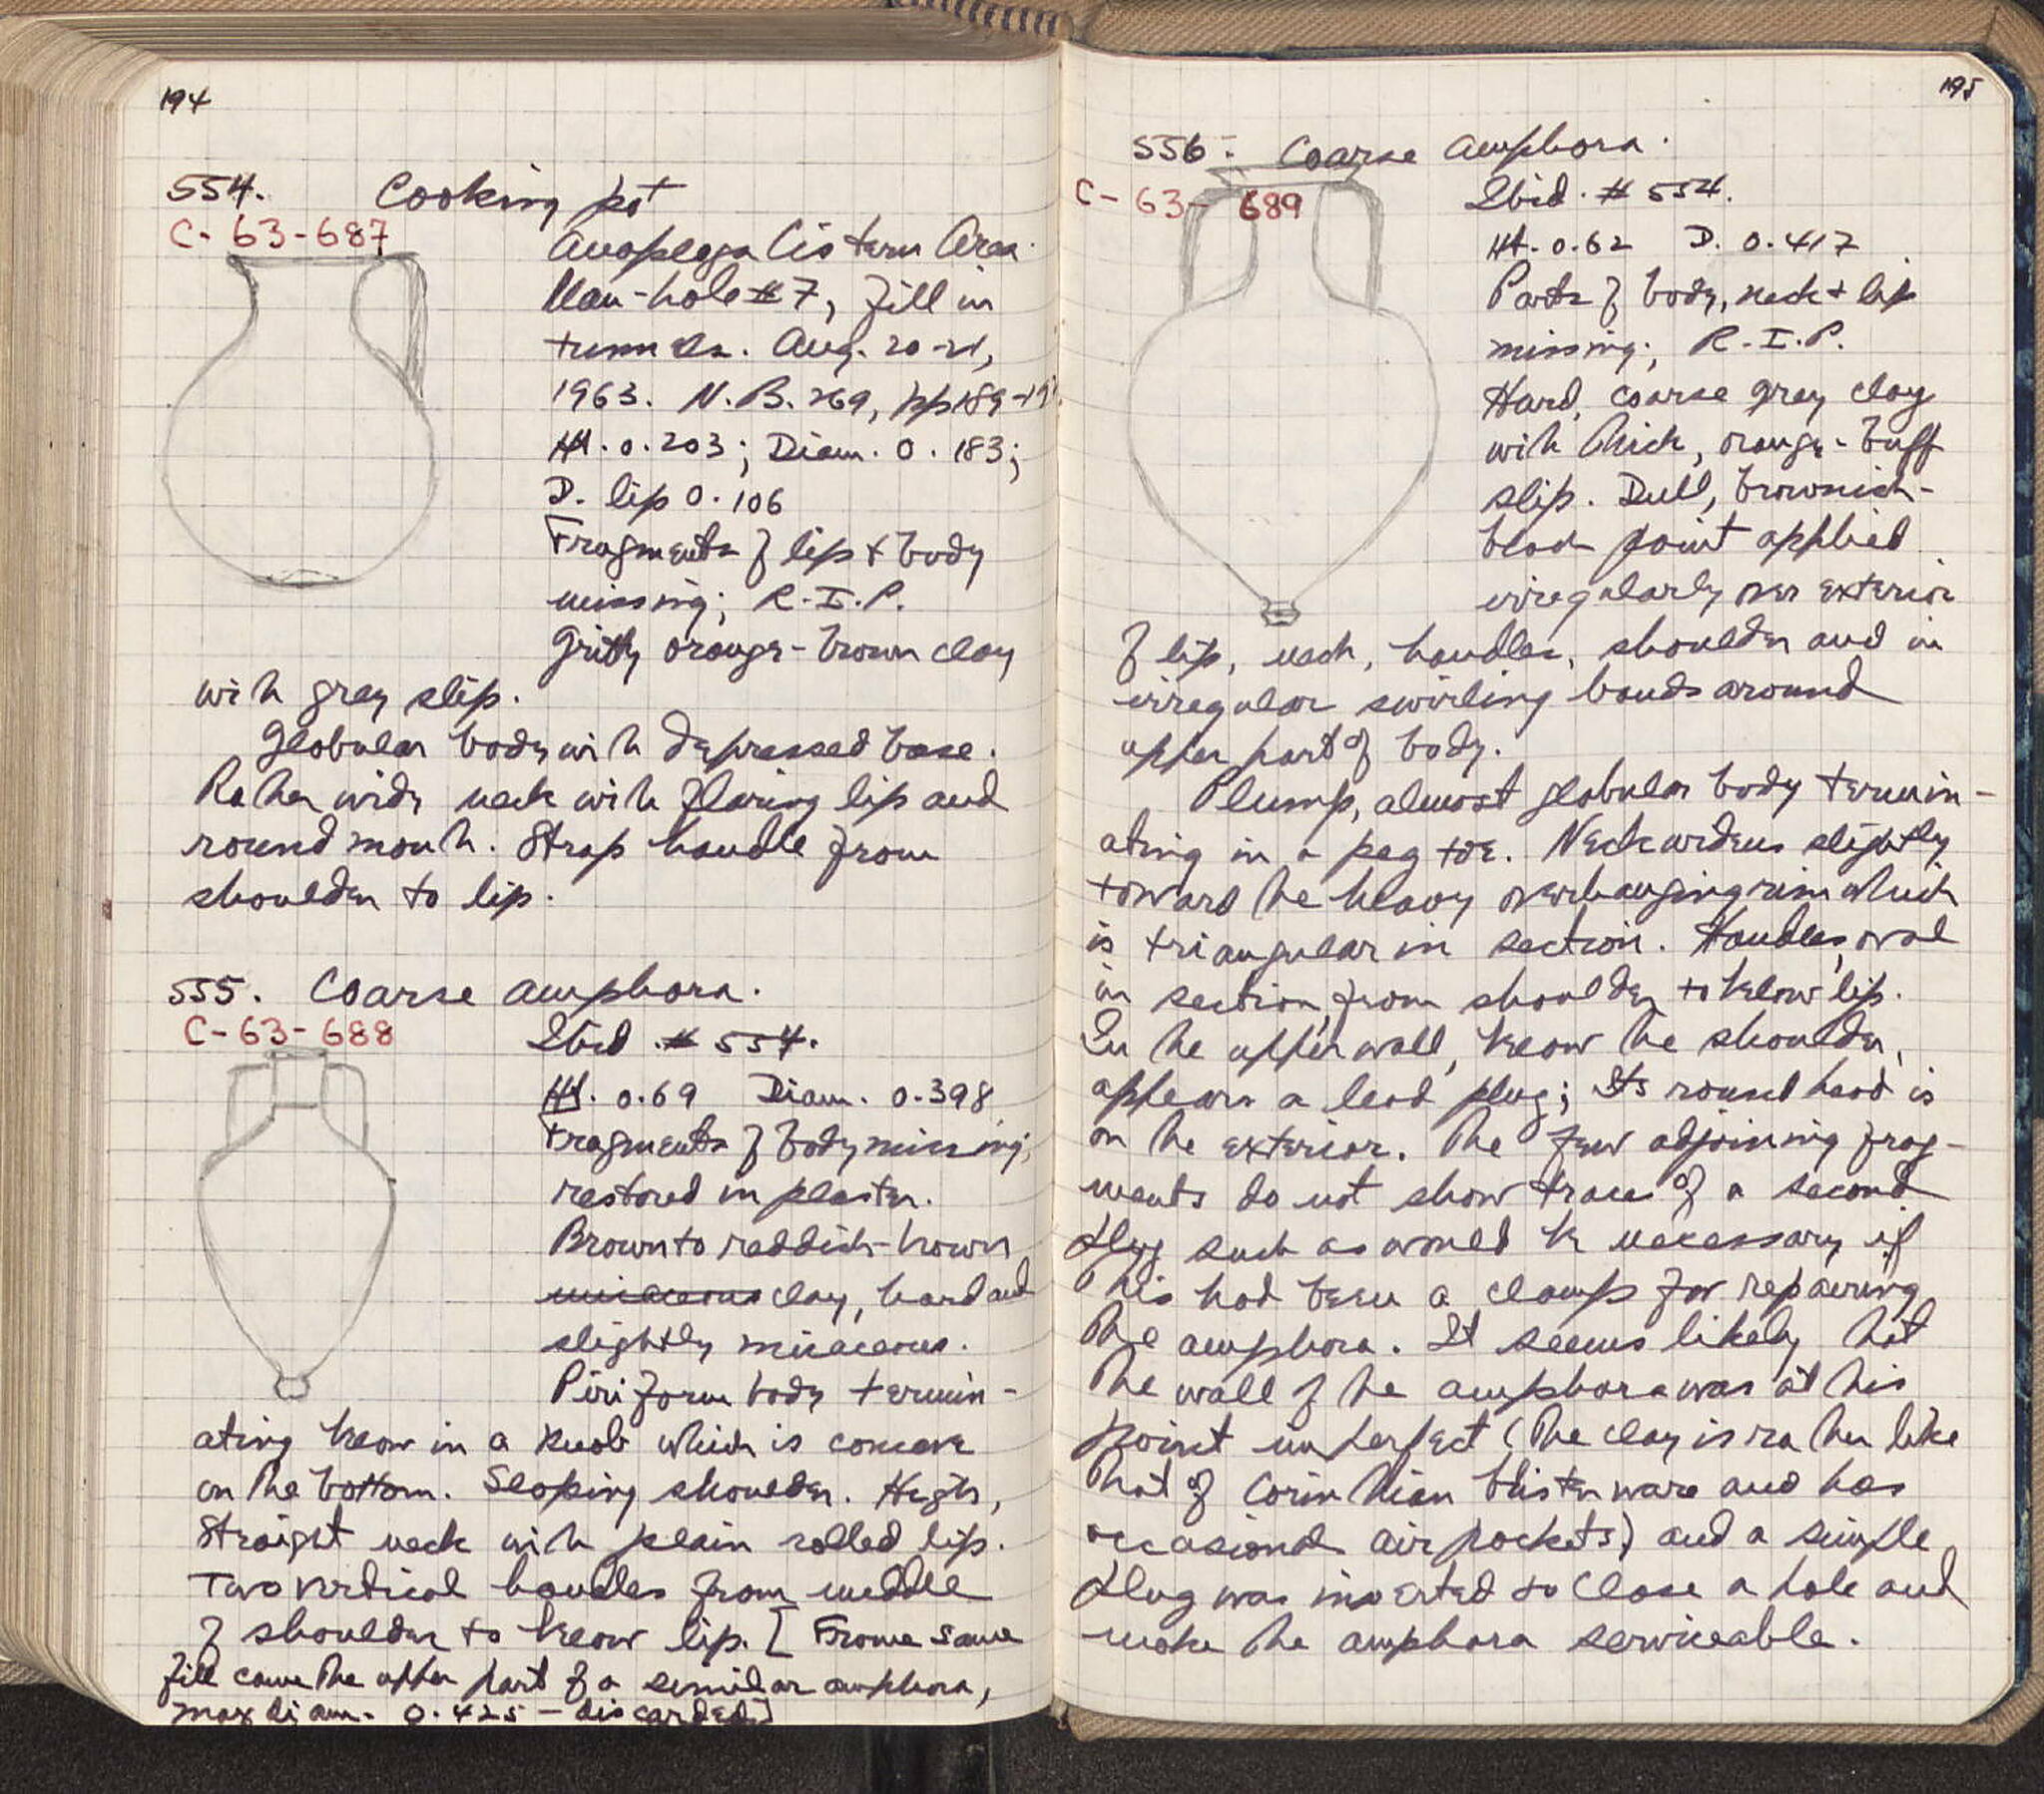 194
554. Cooking pot
C-63-687
Anaploga Cistern Area.
Man-hole #7, fill in
tunnels. Aug. 20-21,
1963. N.B. 269, pp 189-
Ht. 0.203; Diam. 0.183;
D. lip 0.106
Fragments of lip + body
missing; R.I.P.
Gritty orange-brown clay
with gray slip.
Globular body with depressed base.
Rather wide neck with flaring lip and
round mouth. Strap handle from
shoulder to lip.
555. Coarse amphora.
C-63-688
Ibid. # 554.
Ht. 0.69 Diam. 0.398
Fragments of body missing;
restored in plaster.
Brown to reddish-brown
micaceous clay, hard and
slightly micaceous.
Piriform body termin-
ating below in a knob which is concave
on the bottom. Sloping shoulder. High,
straight neck with plain rolled lip.
Two vertical handles from middle
of shoulder to below lip. [From same
fill came the upper part of a similar amphora,
max diam. 0.425 - discarded]
195
556. Coarse amphora.
C-63-689
Ibid. # 554.
Ht. 0.62 D. 0.417
Parts of body, neck + lip
missing; R.I.P.
Hard, coarse gray clay
with thick, orange-buff
slip. Dull, brownish-
black paint applied
irregularly over exterior
of lip, neck, handles, shoulder and in
irregular swirling bands around
upper part of body.
Plump, almost globular body termin-
ating in a peg toe. Neck widens slightly
toward the heavy overhanging rim which
is triangular in section. Handles, oval
in section, from shoulder to below lip.
In the upper wall, below the shoulder,
appears a lead plug; Its round head is
on the exterior. The few adjoining frag-
ments do not show trace of a second
plug such as would be necessary if
this had been a clamp for repairing
the amphora. It seems likely that
the wall of the amphora was at this
point imperfect (the clay is rather like
that of Corinthian blister ware and has
occasional air pockets) and a simple
plug was inserted to close a hole and
make the amphora serviceable.